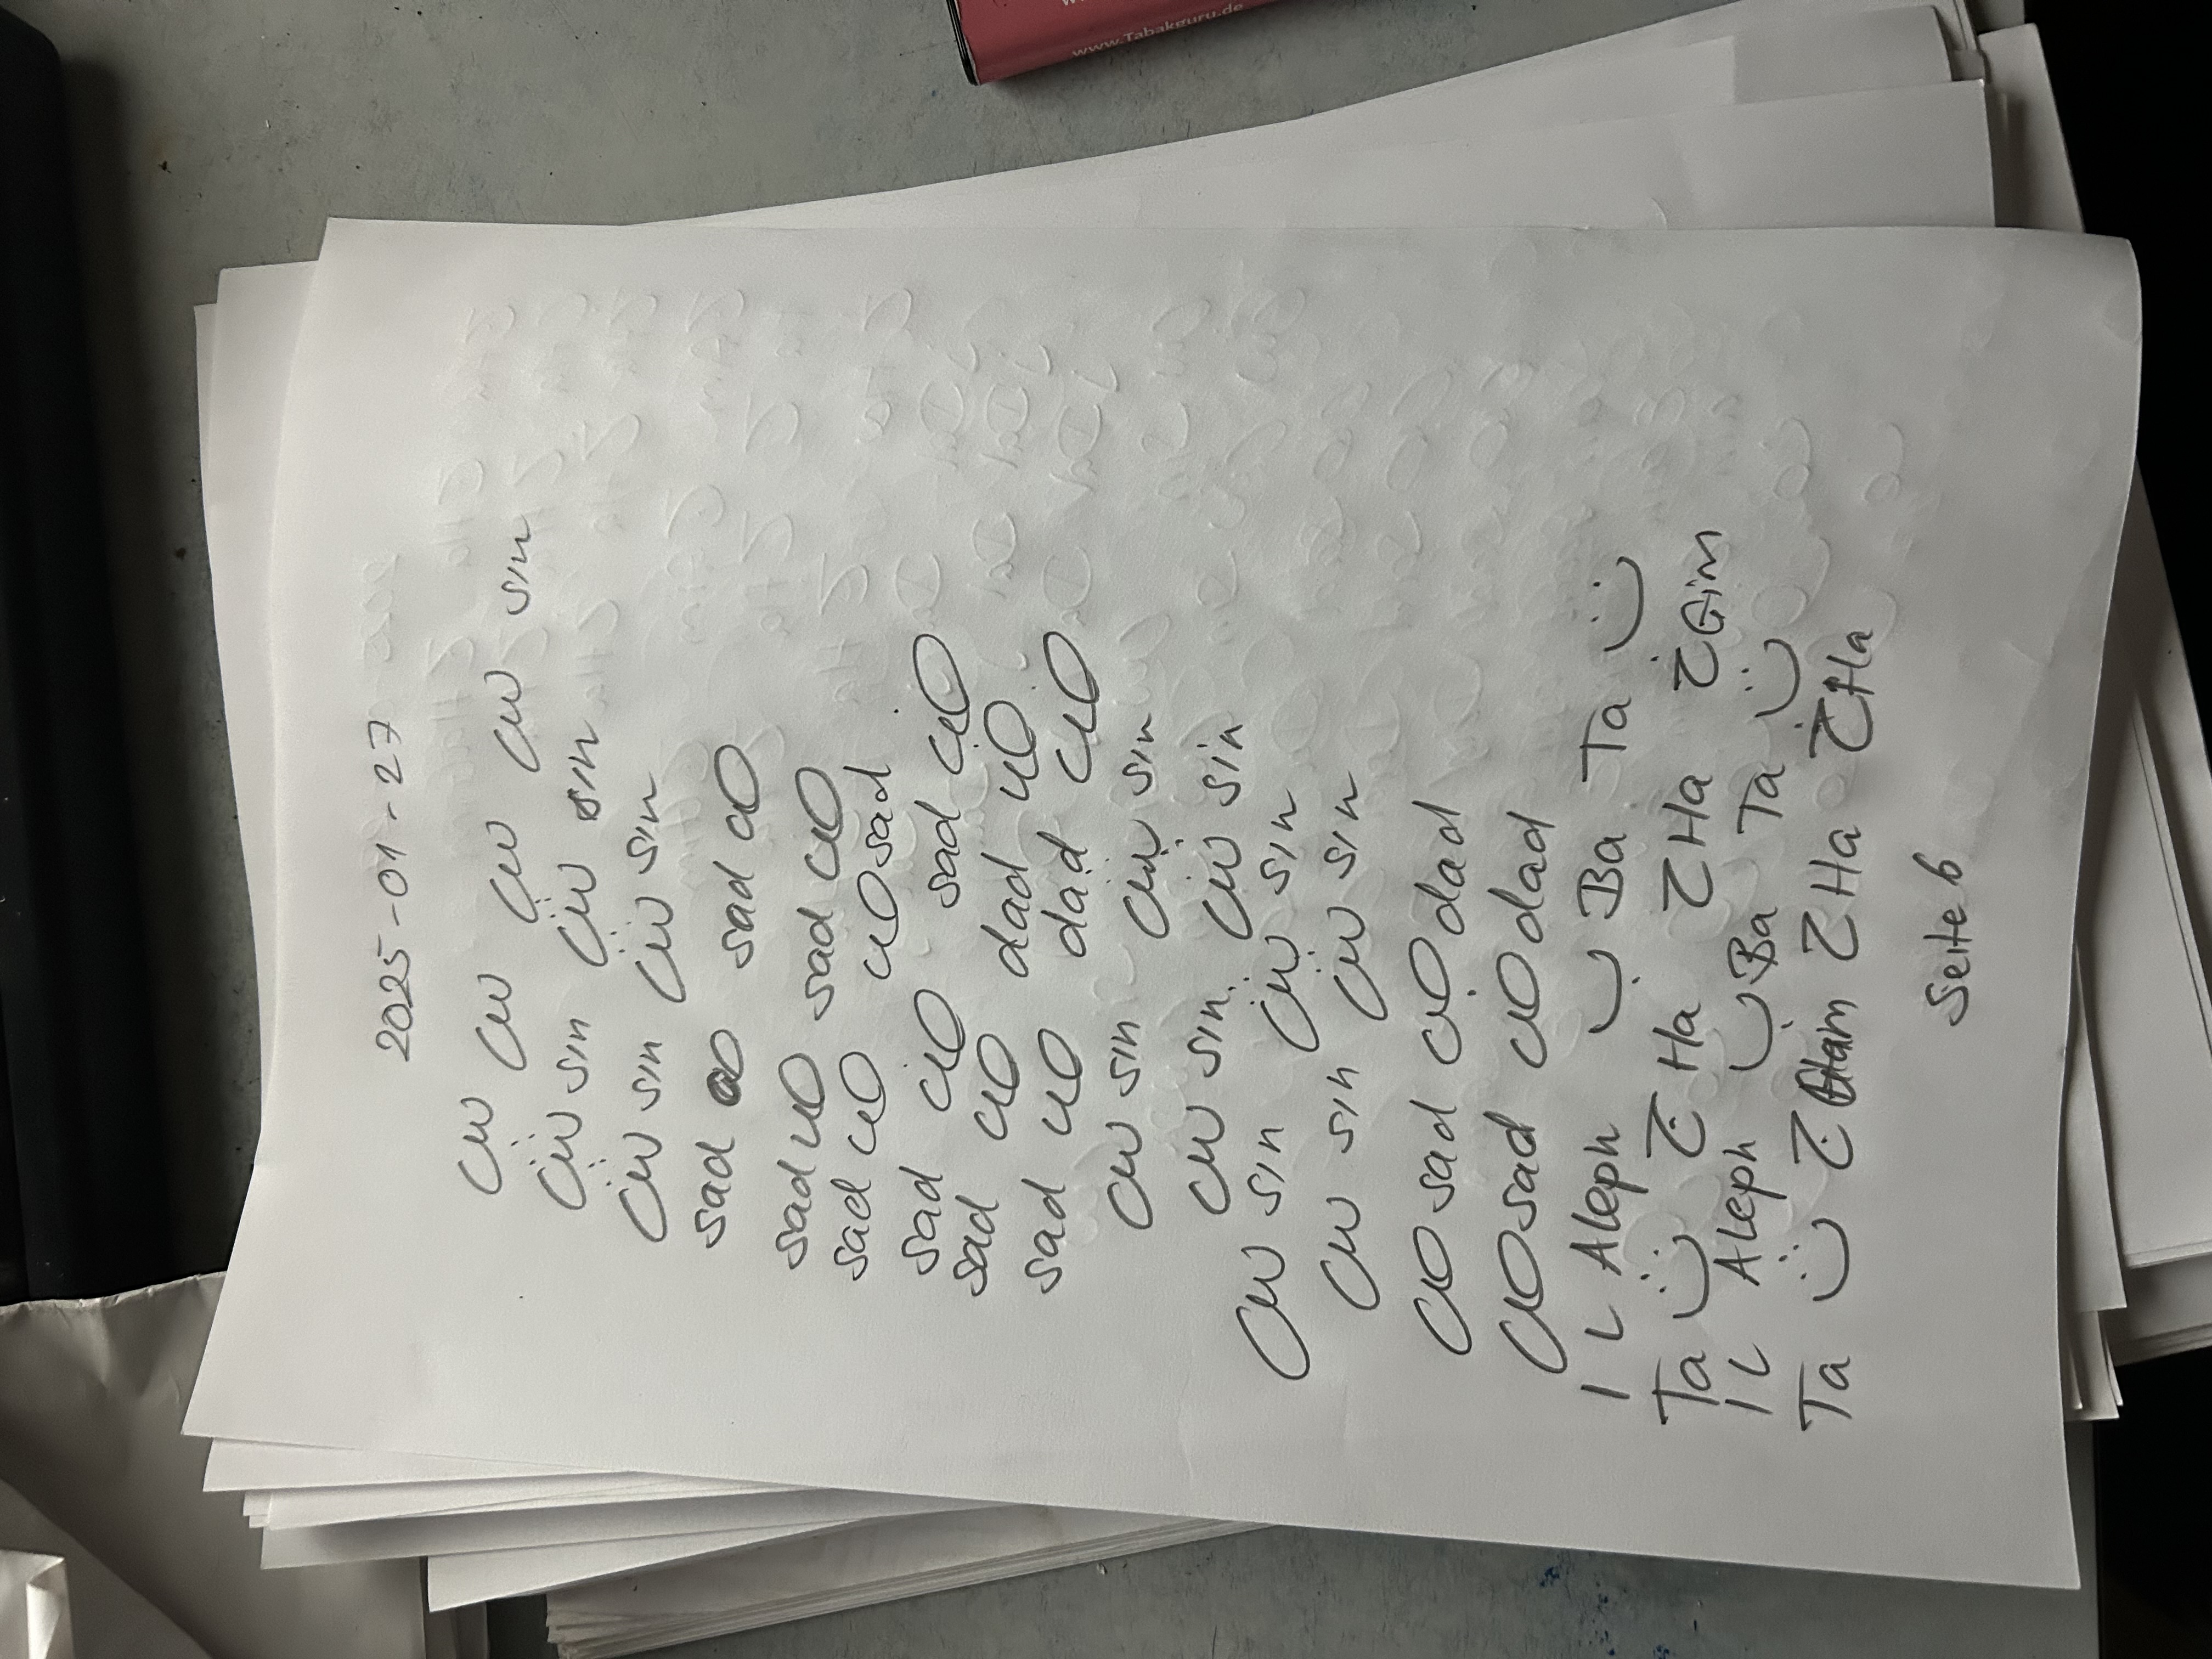 2025-01-27
س س س س sin
ش sin ش sin
ش sin ش sin
sad ص sad ص
sad ص sad ص
sad ص ص sad
sad ص sad ض
sad ص dad ض
sad ص dad ض
س sin ش sin
س sin ش sin
س sin ش sin
س sin ش sin
ص sad ض dad
ص sad ض dad
ا L Aleph ب Ba Ta ت
Ta ت ج Ha ح Ha خ Gim
ا L Aleph ب Ba Ta ت
Ta ت ج ح Ha خ Ha
Seite 6
www.Tabakguru.de